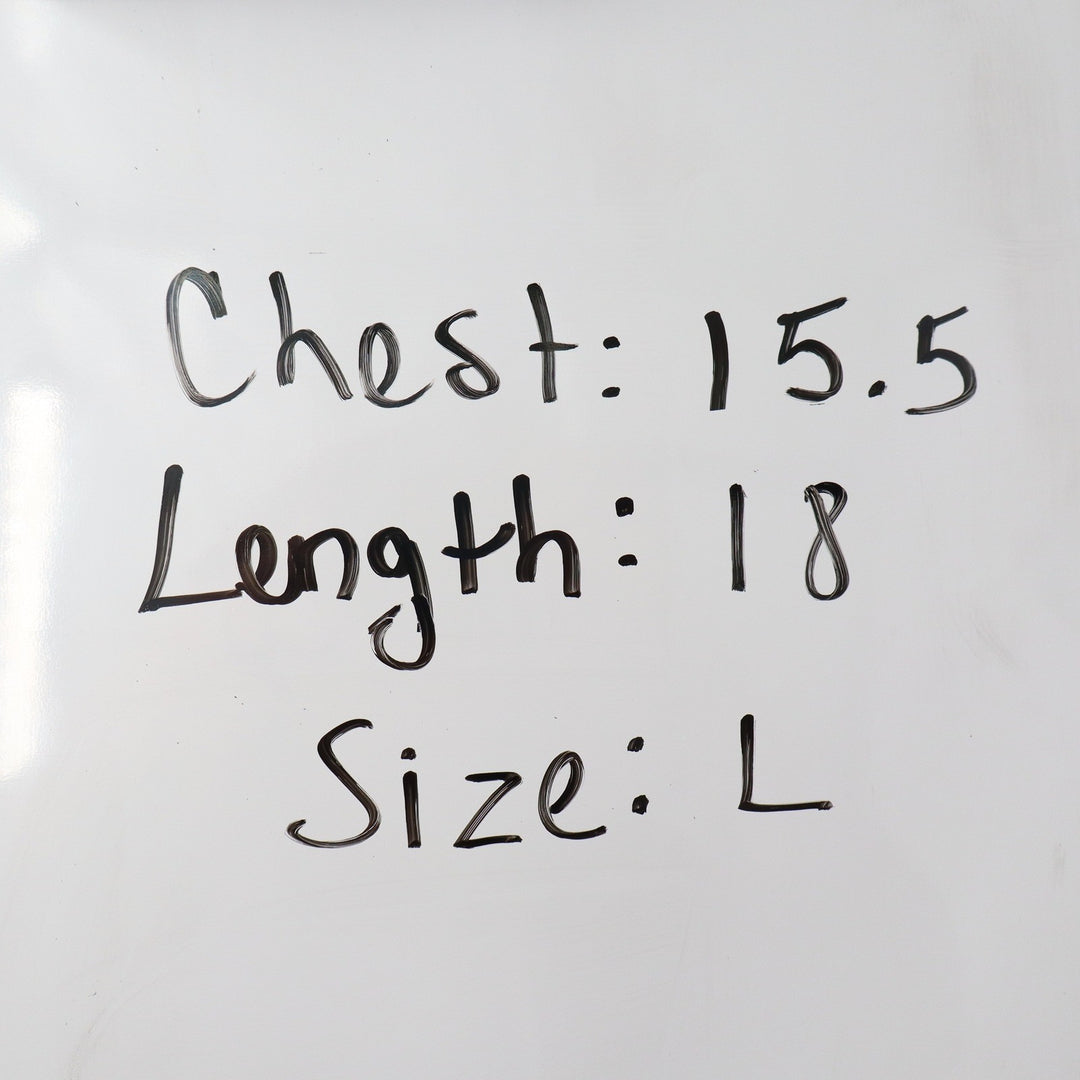 Chest: 15.5
Length: 18
Size: L